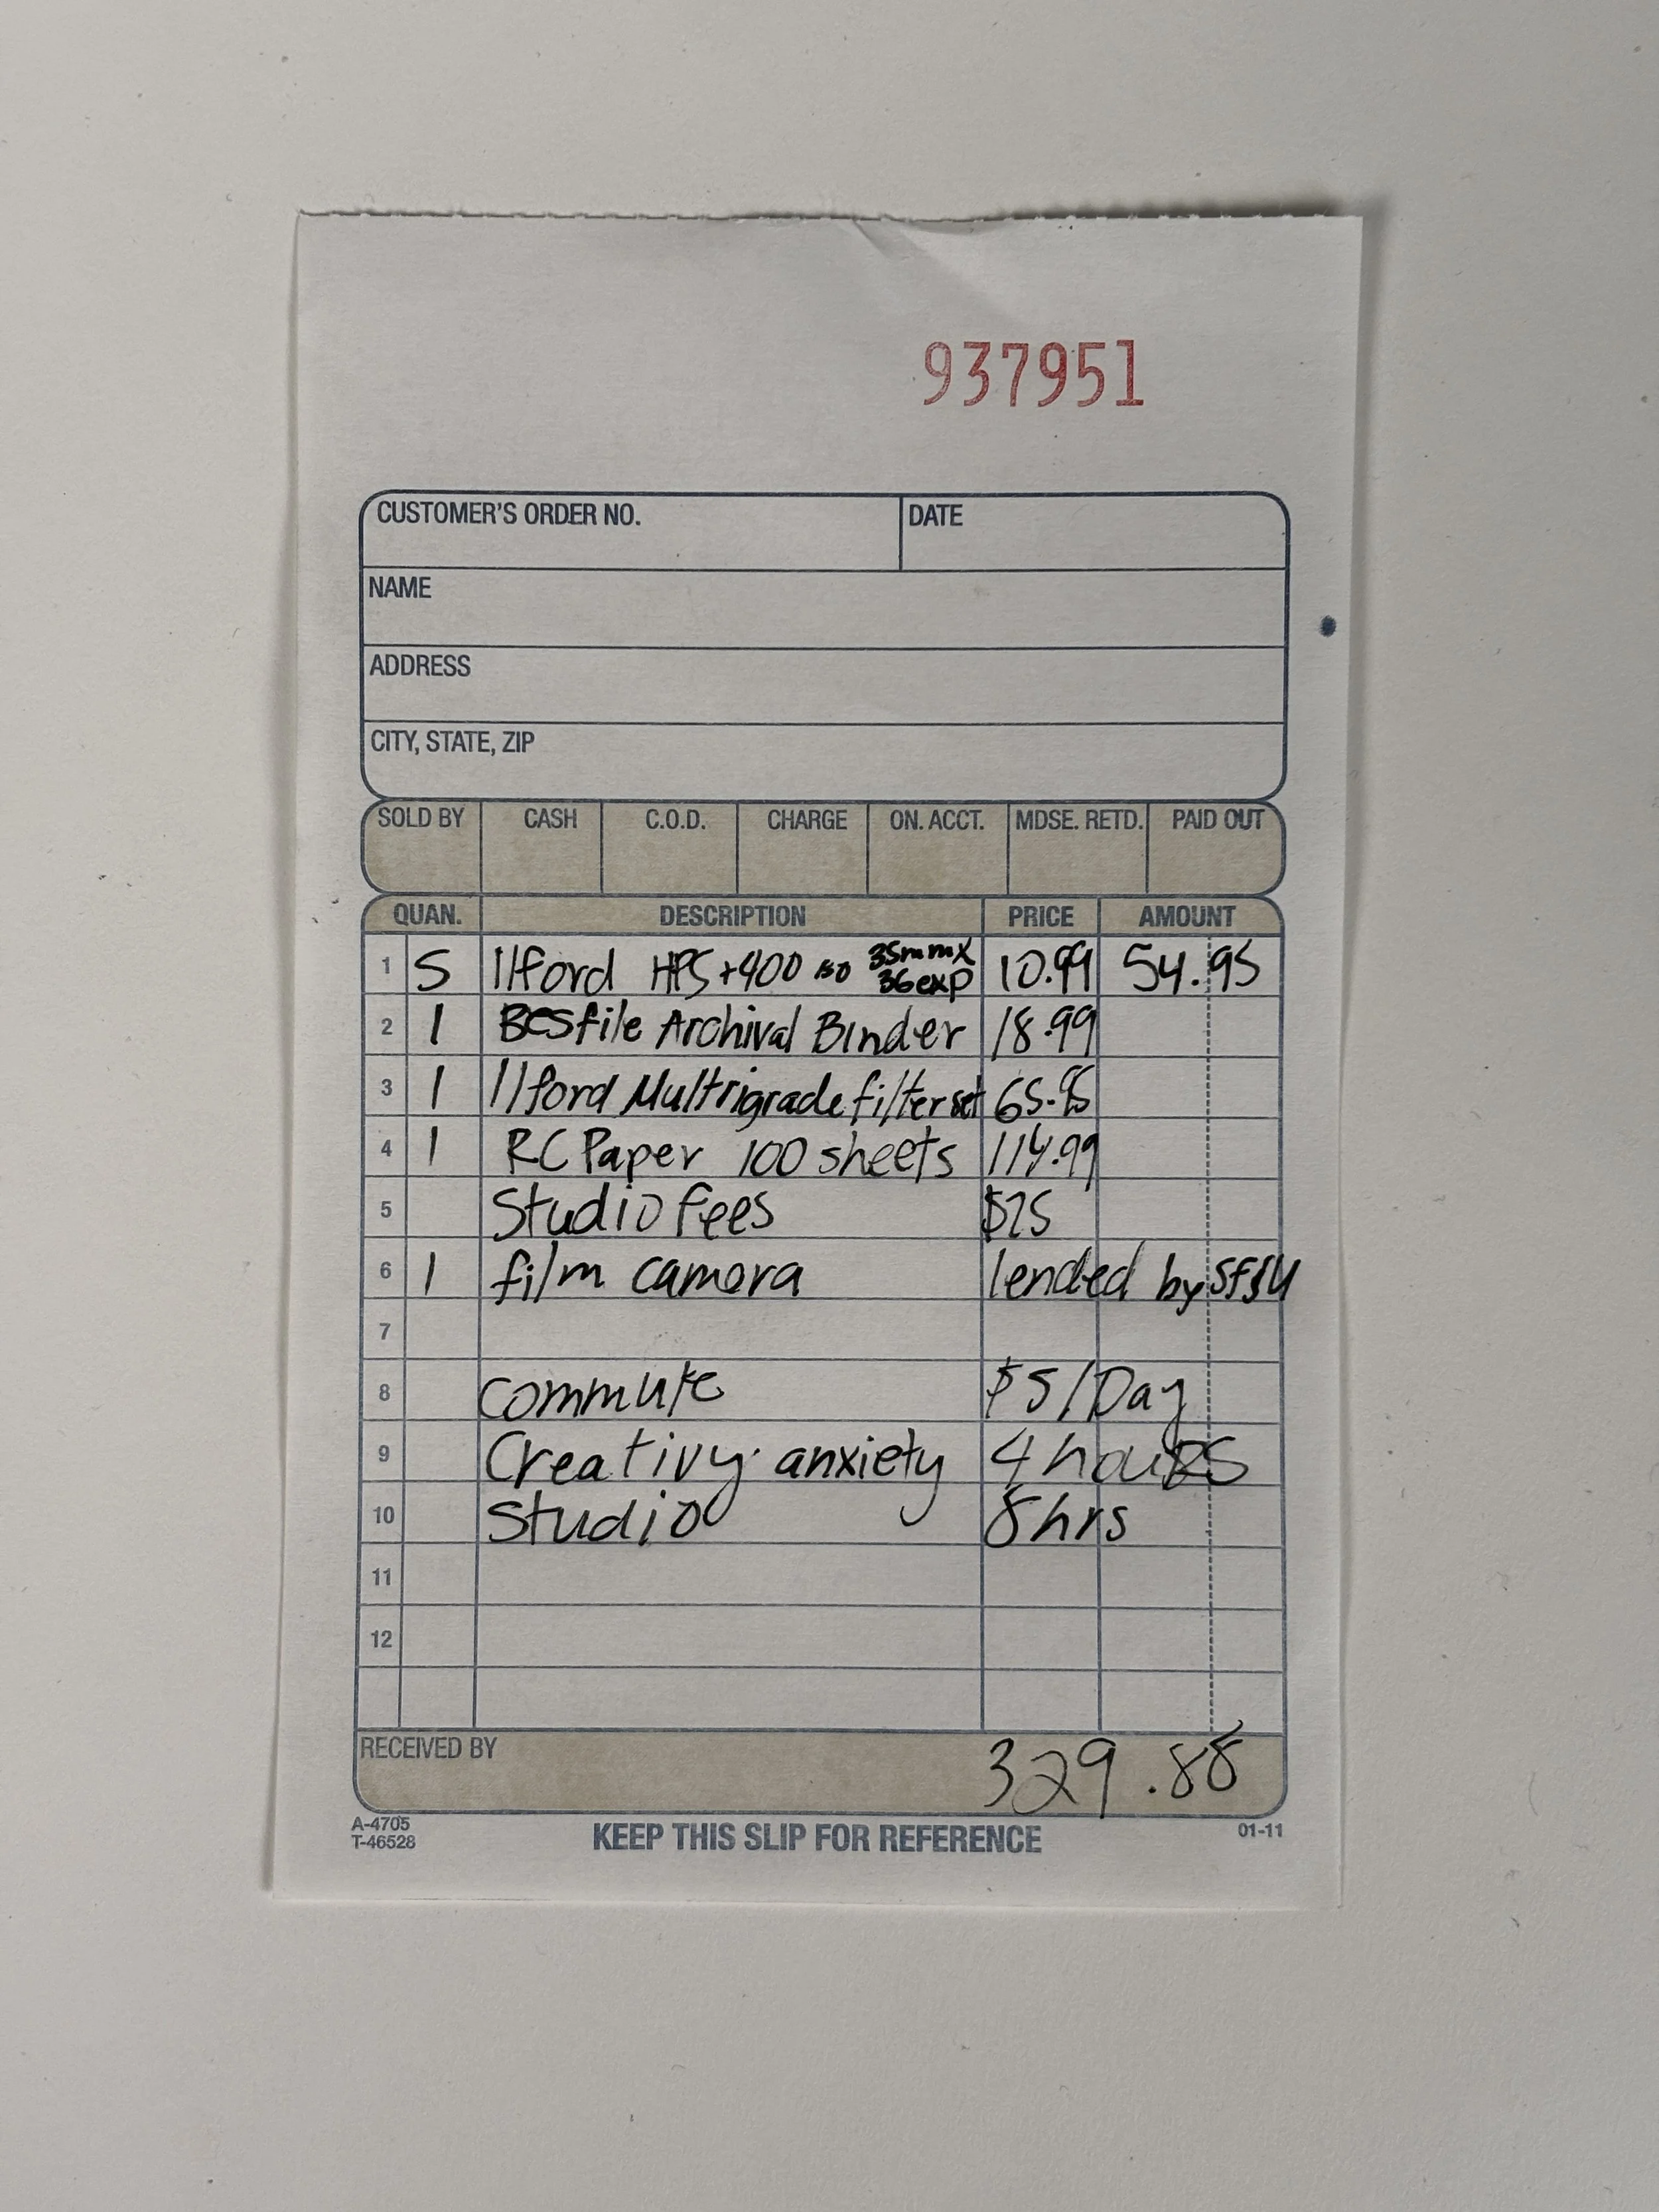 937951
CUSTOMER'S ORDER NO. DATE
NAME
ADDRESS
CITY, STATE, ZIP
SOLD BY CASH C.O.D. CHARGE ON. ACCT. MDSE. RETD. PAID OUT
QUAN. DESCRIPTION PRICE AMOUNT
1 5 Ilford HP5+400 iso 35mm x 36exp 10.99 54.95
2 1 Besfile Archival Binder 18.99
3 1 Ilford Multrigrade filter set 65.95
4 1 RC Paper 100 sheets 114.99
5 Studio fees $75
6 1 film camera lended by SFSU
7
8 commute $5/Day
9 Creativy anxiety 4 hours
10 Studio 8hrs
11
12
RECEIVED BY 329.88
A-4705
T-46528
KEEP THIS SLIP FOR REFERENCE 01-11